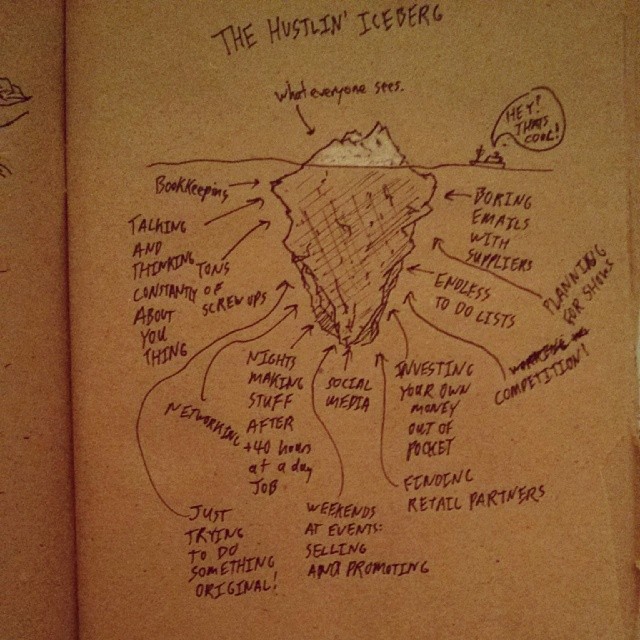 THE HUSTLIN' ICEBERG
what everyone sees.
HEY!
THATS
COOL!
BOOKKEEPING
TALKING
AND
THINKING
CONSTANTLY
ABOUT
YOU
THING
TONS
OF
SCREW UPS
BORING
EMAILS
WITH
SUPPLIERS
PLANNING
FOR SHOWS
ENDLESS
TO DO LISTS
COMPETITION!
NETWORKING
NIGHTS
MAKING
STUFF
AFTER
+40 hours
at a day
JOB
SOCIAL
MEDIA
INVESTING
YOUR OWN
MONEY
OUT OF
POCKET
FINDING
RETAIL PARTNERS
JUST
TRYING
TO DO
SOMETHING
ORIGINAL!
WEEKENDS
AT EVENTS:
SELLING
AND PROMOTING